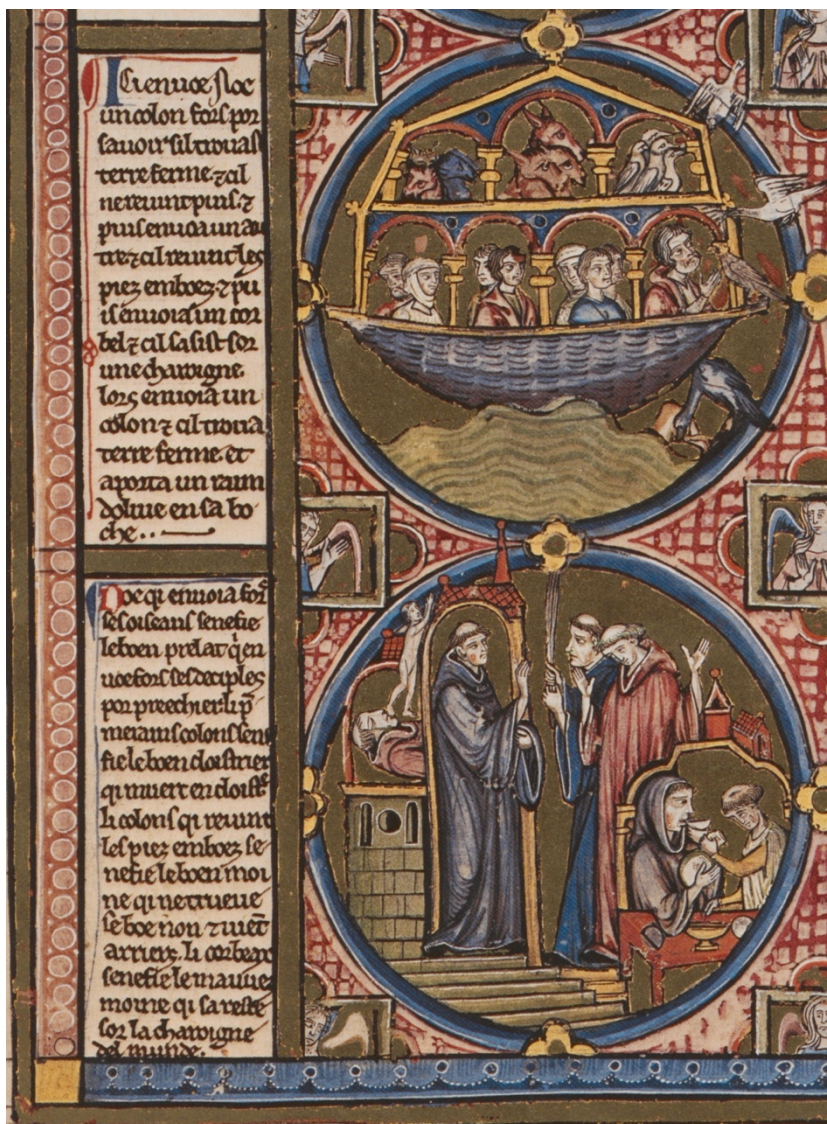 Ici envoe Noe
un colon fors por
savoir sil trovast
terre ferme ⁊ cil
ne revint puis ⁊
puis envoia un au
tre ⁊ cil revint les
piez emboez ⁊ pu
is envoia un cor
bel ⁊ cil sasist sor
une charoigne
lors envoia un
colon ⁊ cil trova
terre ferme et
aporta un raim
dolive en sa bo
che..
Noe qi envoia fors
ses oiseaus senefie
le boen prelat qi en
voe fors ses deciples
por preechier li p
merains colons sene
fie le boen cloistrier
qi muert en cloist
li colons qi revint
les piez emboez se
nefie le boen moi
ne qi ne trueve
se boe non ⁊ vet
arriere. li corbeax
senefie le mauves
moine qi sareste
sor la charoigne
del munde.